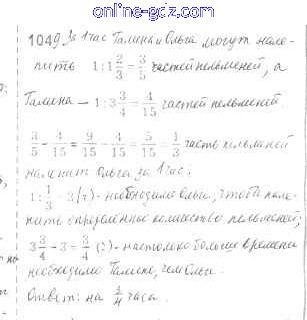 online-gdz.com
1049. За 1 час Галина и Ольга могут нале-
пить 1:1 2/3 = 3/5 частей пельменей, а
Галина – 1:3 3/4 = 4/15 частей пельменей.
3/5 - 4/15 = 9/15 - 4/15 = 5/15 = 1/3 часть пельменей
налепит Ольга за 1 час.
1: 1/3 = 3 (ч) - необходимо Ольге, чтобы нале-
пить определённое количество пельменей;
3 3/4 - 3 = 3/4 (ч) - настолько больше времени
необходимо Галине, чем Ольге.
Ответ: на 3/4 часа.